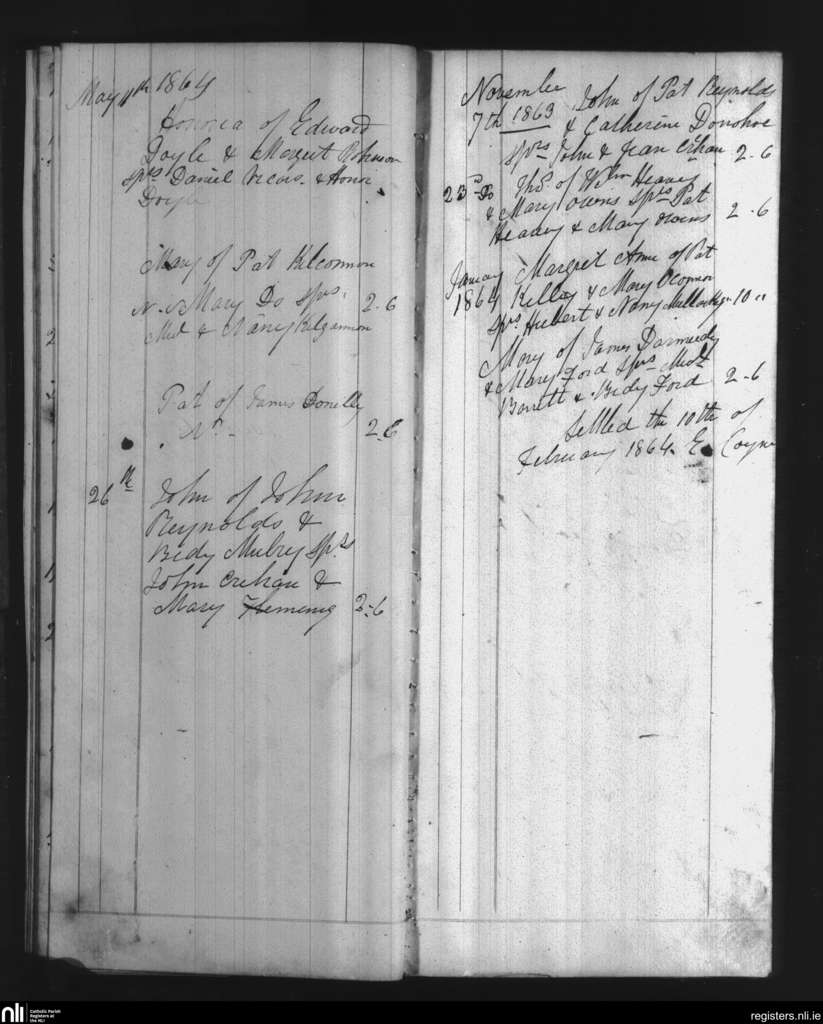 May 11th 1864
Honoria of Edward
Doyle & Margret Robinson
Sprs Daniel & Honor
Doyle
Mary of Pat Kilconnon
N. & Mary Do Sprs. 2-6
Mid & Nancy Kilgannon
Pat of James Donelly
N- 2-6
26th John of John
Reynolds &
Bidy Mulry Sprs
John Crehan &
Mary Flemming 2-6
November
7th 1863 John of Pat Reynolds
& Catherine Donohoe
Sprs John & Jean Crehan 2-6
23rd Do Thos of Wm Heavey
& Mary Owens Sprs Pat
Heavey & Mary Owens 2-6
January Margret Anne of Pat
1864 Kelley & Mary OConnor
Sprs Hubert & Nany 10"
Mary of James Darmudy
& Mary Ford Sprs Midl
Barrett & Bidy Ford 2-6
Settled the 10th of
February 1864. E. Coyne
nli
Catholic Parish
Registers at
the NLI
registers.nli.ie